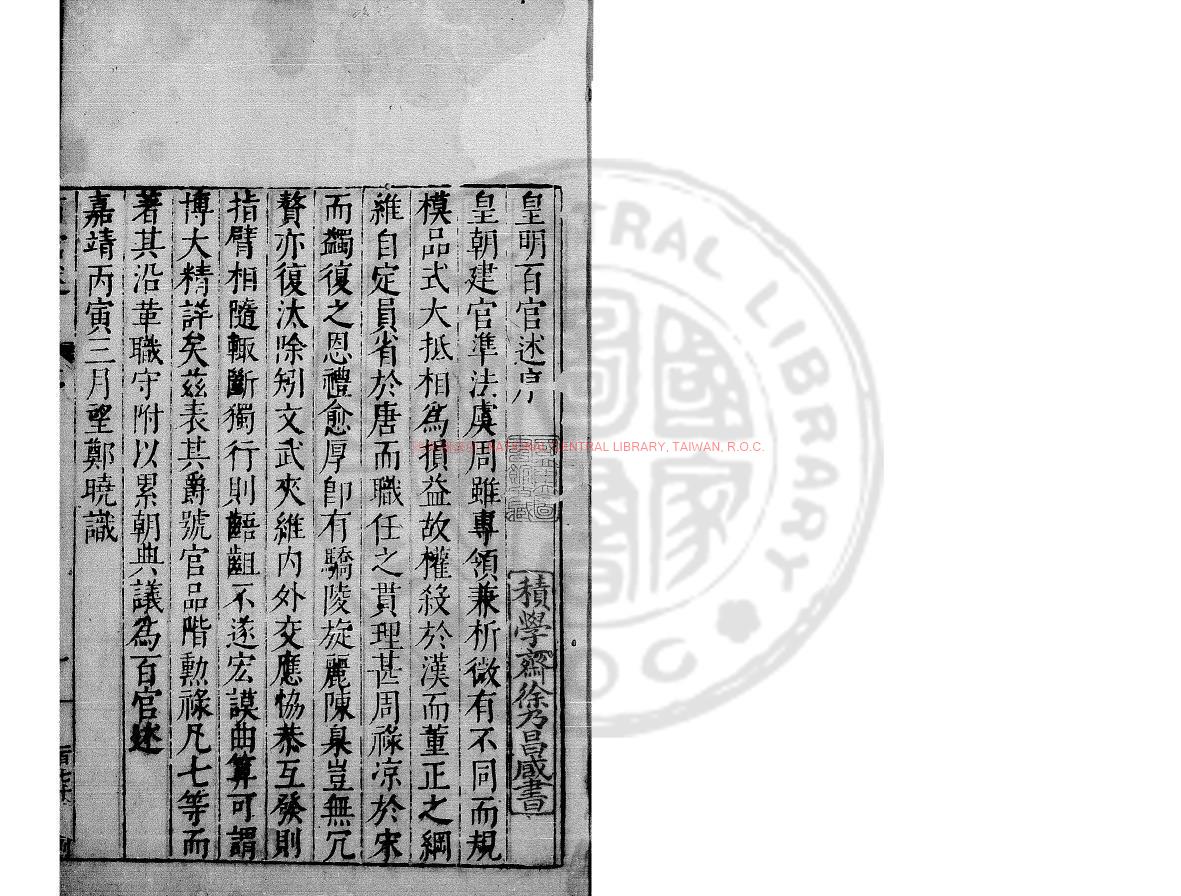 皇明百官述序
積學齋徐乃昌藏書
皇朝建官準法虞周雖專領兼析微有不同而規
模品式大抵相為損益故權殺於漢而董正之綱
維自定員省於唐而職任之貫理甚周祿凉於宋
而蠲復之恩禮愈厚卽有驕陵旋麗陳臬豈無冗
贅亦復汰除矧文武夾維内外交應恊恭互發則
指臂相隨輙斷獨行則齬齟不遂宏謨曲算可謂
博大精詳矣茲表其爵號官品階勲祿凡七等而
著其沿革職守附以累朝典議為百官述
嘉靖丙寅三月望鄭曉識
NATIONAL CENTRAL LIBRARY, TAIWAN, R.O.C.
CENTRAL LIBRARY